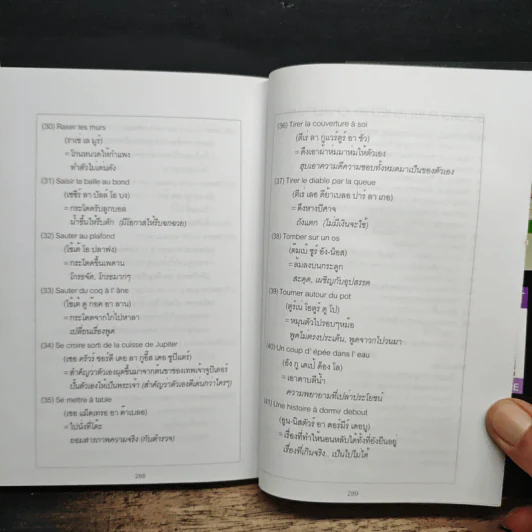 (30) Raser les murs
(ราเซ เล มูร์)
= โกนหนวดให้กำแพง
ทำตัวไม่เด่นดัง
(31) Saisir la balle au bond
(เซซีร์ ลา บัลล์ โอ บง)
= กระโดดรับลูกบอล
น้ำขึ้นให้รีบตัก (มีโอกาสให้รีบฉกฉวย)
(32) Sauter au plafond
(โซ้เต้ โอ ปลาฟง)
= กระโดดขึ้นเพดาน
โกรธจัด, โกรธมากๆ
(33) Sauter du coq à l' âne
(โซ้เต้ ดู ก๊อค อา ลาน)
= กระโดดจากไก่ไปหาลา
เปลี่ยนเรื่องพูด
(34) Se croire sorti de la cuisse de Jupiter
= สำคัญว่าตัวเองผุดขึ้นมาจากต้นขาของเทพเจ้าจูปิเตอร์
นึกตัวเองให้เป็นพระเจ้า (สำคัญว่าตัวเองดีเด่นกว่าใครๆ)
(35) Se mettre à table
(เซอ แม็ตเทรอ อา ต๊าเบลอ)
= ไปนั่งที่โต๊ะ
ยอมสารภาพความจริง (กับตำรวจ)
288
(36) Tirer la couverture à soi
(ตีเร่ ลา กูแวร์ตูร์ อา ซัว)
= ดึงเอาผ้าห่มมาห่มให้ตัวเอง
สูบเอาความดีความชอบทั้งหมดมาเป็นของตัวเอง
(37) Tirer le diable par la queue
(ตีเร่ เลอ ดีย้าเบลอ ปาร์ ลา เกอ)
= ดึงหางปีศาจ
ถังแตก (ไม่มีเงินจะใช้)
(38) Tomber sur un os
(ต้มเบ้ ซูร์ อัง-น็อส)
= ล้มลงบนกระดูก
สะดุด, เผชิญกับอุปสรรค
(39) Tourner autour du pot
(ตูร์เน่ โอตูร์ ดู โป)
= หมุนตัวไปรอบๆหม้อ
พูดไม่ตรงประเด็น, พูดจาวกไปวนมา
(40) Un coup d' épée dans l' eau
(อัง กู เดเป้ ด็อง โล)
= เอาดาบตีน้ำ
ความพยายามที่เปล่าประโยชน์
(41) Une histoire à dormir debout
(อูน-นิสตัวร์ อา ดอร์มีร์ เดอบู)
= เรื่องที่ทำให้นอนหลับได้ทั้งที่ยังยืนอยู่
เรื่องที่เกินจริง.. เป็นไปไม่ได้
289